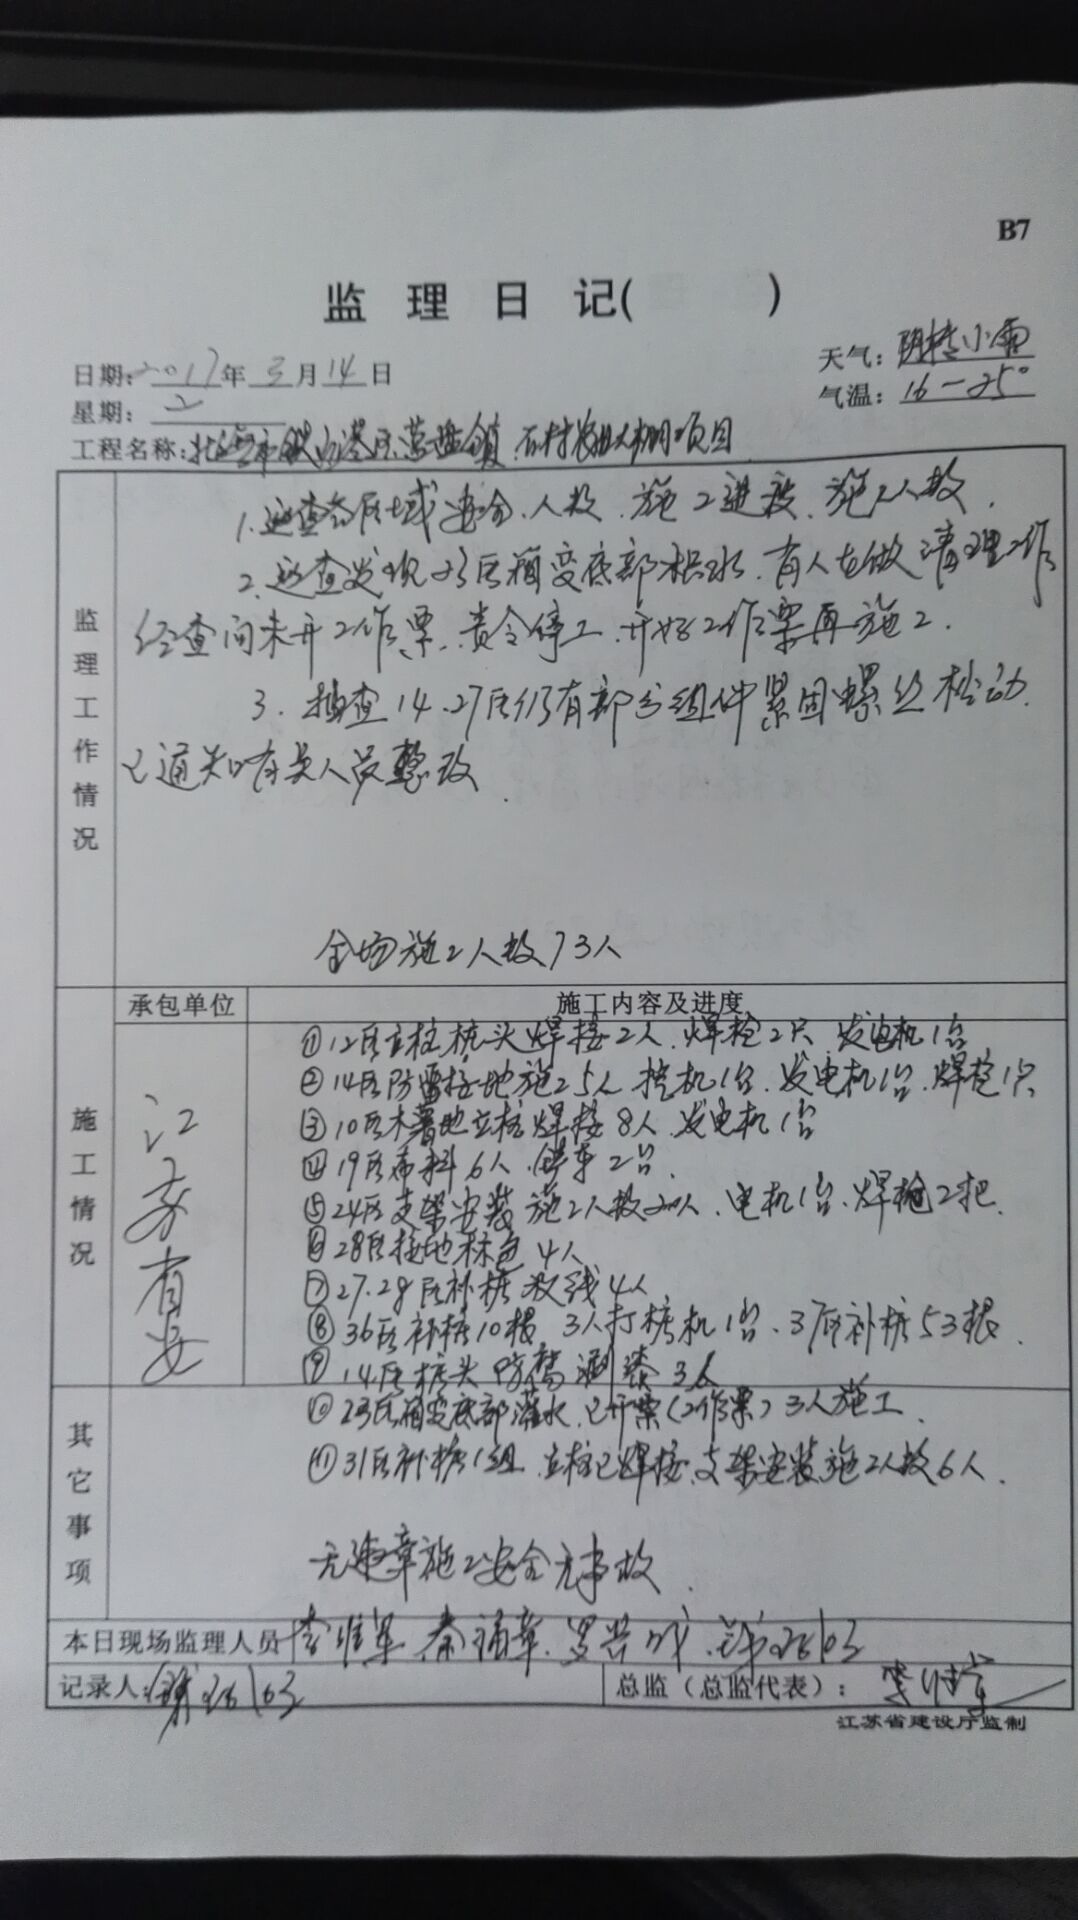 B7
监理日记( )
日期:2017年3月14日
天气:阴转小雨
星期:2
气温:16-25°
工程名称:北海市铁山港区营盘镇 石村农业大棚项目
监理工作情况
1.巡查各区域安全、人数、施工进度、施工人数.
2.巡查发现23区箱变底部积水.有人在做清理工作
经查问未开工作票.责令停工.开好工作票再施工.
3.抽查14.27区仍有部分组件紧固螺丝松动.
已通知有关人员整改.
全场施工人数73人
施工情况
承包单位
施工内容及进度
江苏有安
①12区立柱桩头焊接2人.焊枪2只.发电机1台
②14区防雷接地施工5人 挖机1台.发电机1台.焊枪1只
③10区木薯地立柱焊接8人.发电机1台
④19区布料6人 车2台.
⑤24区支架安装施工人数20人.电机1台.焊枪2把.
⑥28区接地标色4人
⑦27.28区补桩放线4人
⑧36区补桩10根 3人打桩机1台、37区补桩53根.
⑨14区桩头防腐油漆3人
其它事项
⑩23区箱变底部灌水.已开票(工作票)3人施工.
⑪31区补桩1组 立柱已焊接.支架安装施工人数6人.
无违章施工安全无事故.
本日现场监理人员 李维军 秦涌章.
记录人:
总监(总监代表): 李维军
江苏省建设厅监制